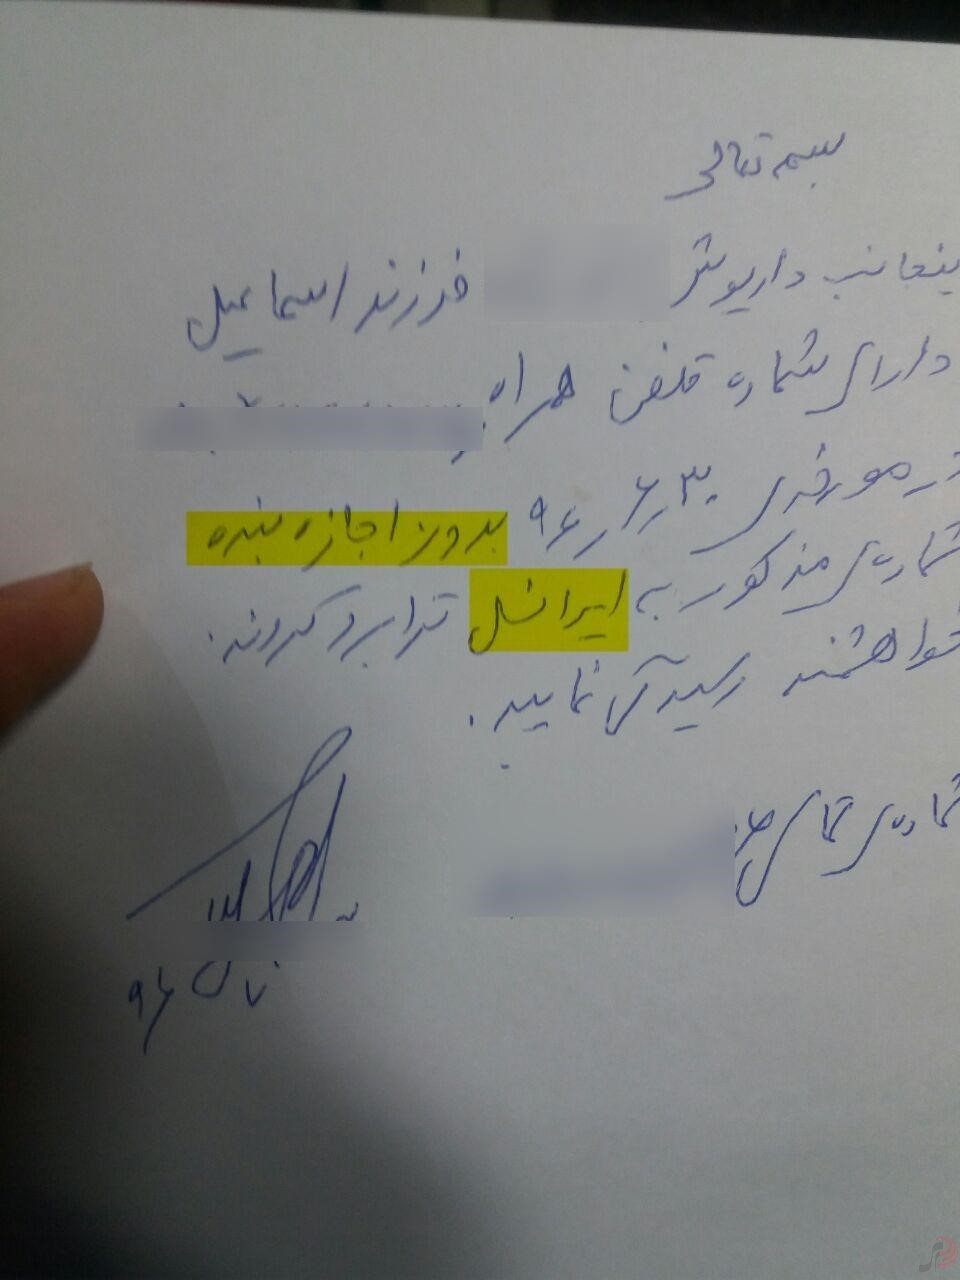 بسمه تعالی
ینجانب داریوش فرزند اسماعیل
دارای شماره تلفن همراه
در مورخه‌ی ۹۶/۶/۳۰ بدون اجازه بنده
شماره‌ی مذکور به ایرانسل ترابرد کردند.
خواهشمند رسیدگی نمایید.
شماره‌ی تماس